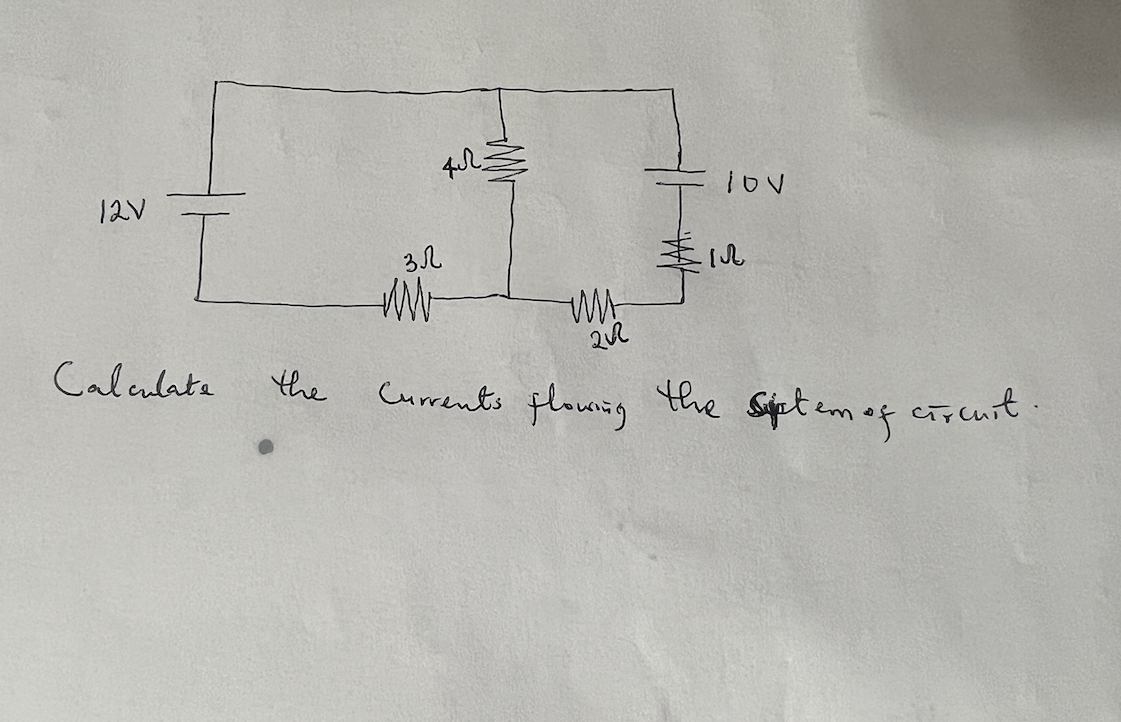 4Ω
10V
12V
1Ω
3Ω
2Ω
Calculate the currents flowing the system of circuit.